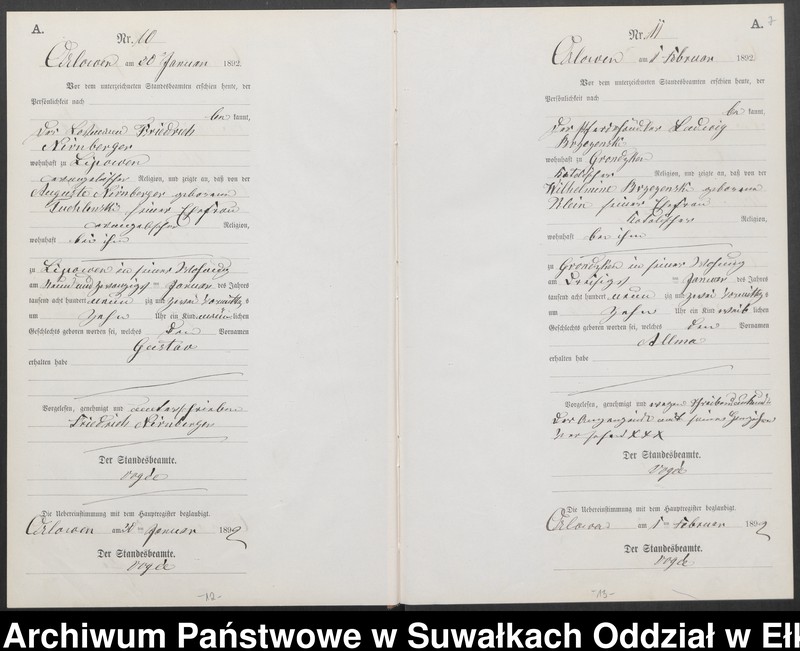 A.
Nr. 10
Orlowen am 30 Januar 1892
Vor dem unterzeichneten Standesbeamten erschien heute, der
Persönlichkeit nach
be kannt,
der Losmann Friedrich
Nürnberger
wohnhaft zu Lipowen
evangelischer Religion, und zeigte an, daß von der
Auguste Nürnberger geborenen
Tuchlinski seiner Ehefrau
evangelischer Religion,
wohnhaft bei ihm
zu Lipowen in seiner Wohnung
am neun und zwanzigsten Januar des Jahres
tausend acht hundert neun zig und zwei Vormittags
um Zehn Uhr ein Kind männ lichen
Geschlechts geboren worden sei, welches den Vornamen
Gustav
erhalten habe
Vorgelesen, genehmigt und unterschrieben
Friedrich Nürnberger
Der Standesbeamte.
Vogde
Die Uebereinstimmung mit dem Hauptregister beglaubigt.
Orlowen am 30 ten Januar 1892
Der Standesbeamte.
Vogde
-12-
A. 7
Nr. 11
Orlowen am 1 Februar 1892
Vor dem unterzeichneten Standesbeamten erschien heute, der
Persönlichkeit nach
be kannt,
der Pferdehändler Ludwig
Brzezenski
wohnhaft zu Grondzken
katolischer Religion, und zeigte an, daß von der
Wilhelmine Brzezenski geborenen
Klein seiner Ehefrau
katolischer Religion,
wohnhaft bei ihm
zu Grondzken in seiner Wohnung
am dreisigsten Januar des Jahres
tausend acht hundert neun zig und zwei Vormittags
um Zehn Uhr ein Kind weib lichen
Geschlechts geboren worden sei, welches den Vornamen
erhalten habe
Vorgelesen, genehmigt und wegen Schreibensunkunde
der Anzeigende mit seinem Handzeichen
versehen XXX
Der Standesbeamte.
Vogde
Die Uebereinstimmung mit dem Hauptregister beglaubigt.
Orlowen am 1 ten Februar 1892
Der Standesbeamte.
Vogde
-13-
Archiwum Państwowe w Suwałkach Oddział w Ełk